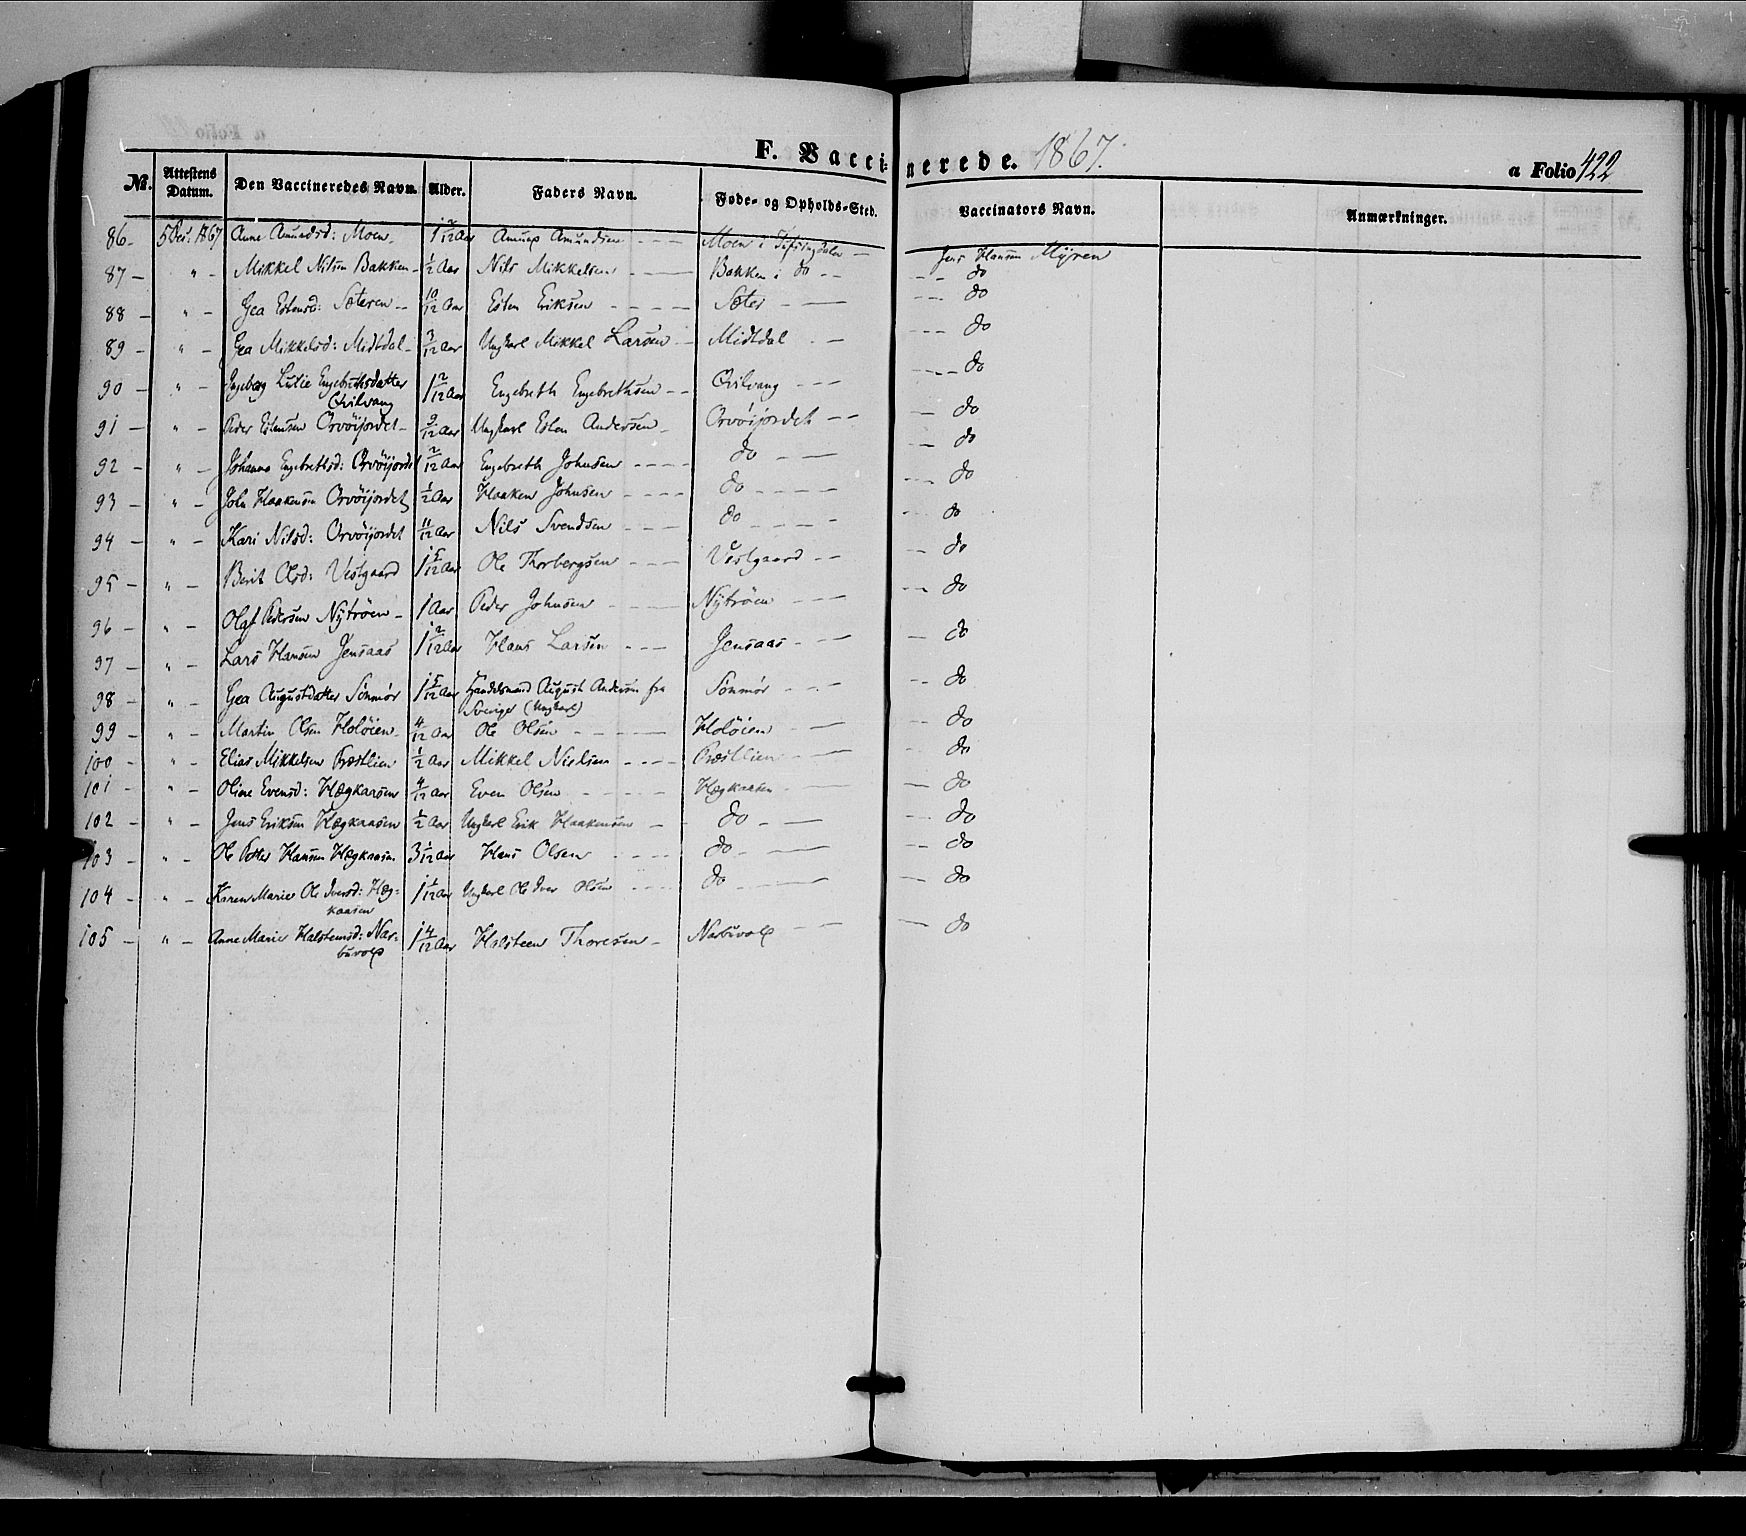 F. Vaccinerede. 1867.
a Folio 422
Nr. Attestens Datum. Den Vaccineredes Navn. Alder. Faders Navn. Føde- og Opholds-Sted. Vaccinators Navn. Anmærkninger.
86- 5 Dec: 1867 Anne Amundsd: Moen- 1 2/12 Aar Amund Amundsen - - - Moen i Jens Hansen Myren
87 - " - Mikkel Nilsen Bakken- 1/2 Aar Nils Mikkelsen - - - Bakken i do - - - - do
88 - " - Gea Estensd: Sæteren - - 10/12 Aar Esten Eriksen - - - - Sæter - - - - - do
89 - " - Gea Mikkelsd: Midtdal- 3/12 Aar Ungkarl Mikkel Larsen - - Midtdal - - - - - do
90 - " - Ingeborg Lutie Engebrethsdatter 1 2/12 Aar Engebreth Engebrethsen - - Qvilvang - - - - - - do
Qvilvang
91 - " - Peder Estensen Orvøijordet- 9/12 Aar Ungkarl Esten Andersen - Orvøijordet - - - do
92 - " - Johanna Engebrethsd: Orvøijordet 1 2/12 Aar Engebreth Johnsen - - - - do - - - - do
93 - " - John Haakensen Orvøijordet 1/2 Aar Haaken Johnsen - - - - do - - - - - - - do
94 - " - Kari Nilsd: Orvøijordet 11/12 Aar Nils Svendsen - - - do - - - - - - - do
95 - " - Berit Olsd: Vestgaard 1 5/12 Aar Ole Thorbergsen - - - Vestgaard - - - - do
96 - " - Olaf Pedersen Nytrøen - 1 Aar Peder Johnsen - - - - Nytrøen - - - - - do
97 - " - Lars Hansen Jensaas 1 2/12 Aar Hans Larsen - - - Jensaas - - - - do
98 - " - Gea Augustdatter Sönmör 1 5/12 Aar Handelsmand August Andersen fra Sönmör - - - - - do
Sverige (Ungkarl)
99 - " - Martin Olsen Holöien- 4/12 Aar Ole Olsen - - - - Holöien - - - - do
100 - " - Elias Mikkelsen Præstlien 1/2 Aar Mikkel Nielsen - - - - Præstlien - - - - do
101 - " - Oline Evensd: Hægkaasen 4/12 Aar Even Olsen - - - - - Hægkaasen - - - do
102 - " - Jens Eriksen Hægkaasen 1/2 Aar Ungkarl Erik Haakensen - do - - - - do
103 - " - Ole Petter Hansen Hægkaasen 3 1/12 Aar Hans Olsen - - - - do - - - - do
104 - " - Karen Marie Ole Iversd: Hæg- 1 1/12 Aar Ungkarl Ole Iver Olsen - - - - do - - - - do
kaasen
105 - " - Anne Marie Halstensd: Nar- 1 4/12 Aar Halsteen Thoresen - Narbuvold - - - do
buvold